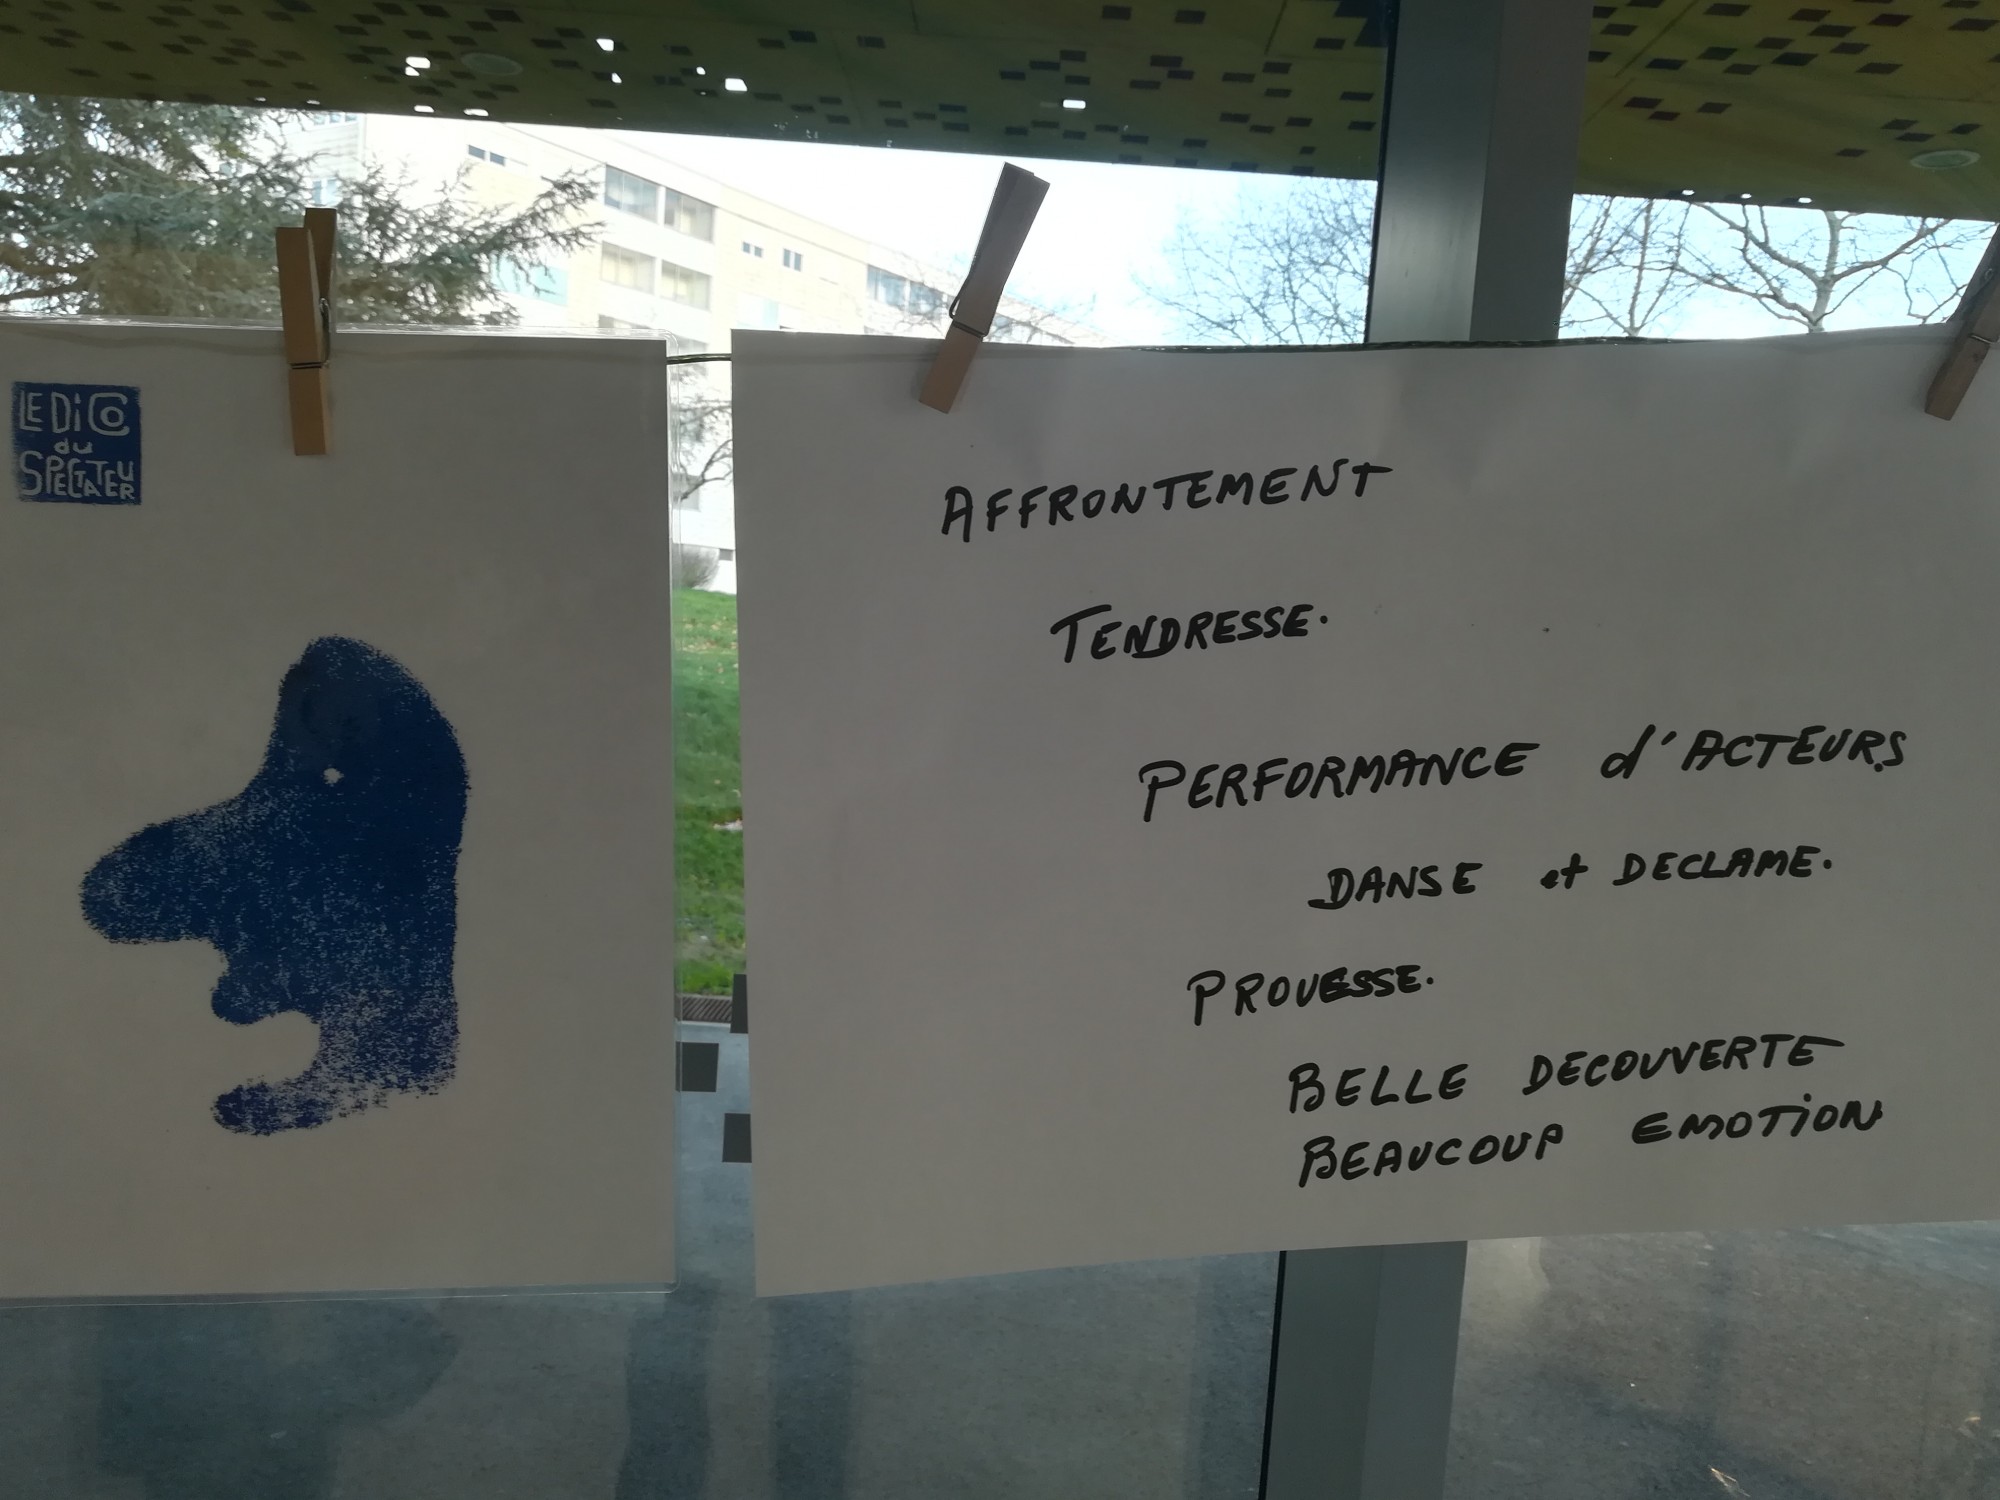 LE DiCO
du
SPECTATEUR
AFFRONTEMENT
TENDRESSE.
PERFORMANCE d'ACTEURS
DANSE et DECLAME.
PROUESSE.
BELLE DECOUVERTE
BEAUCOUP EMOTiON